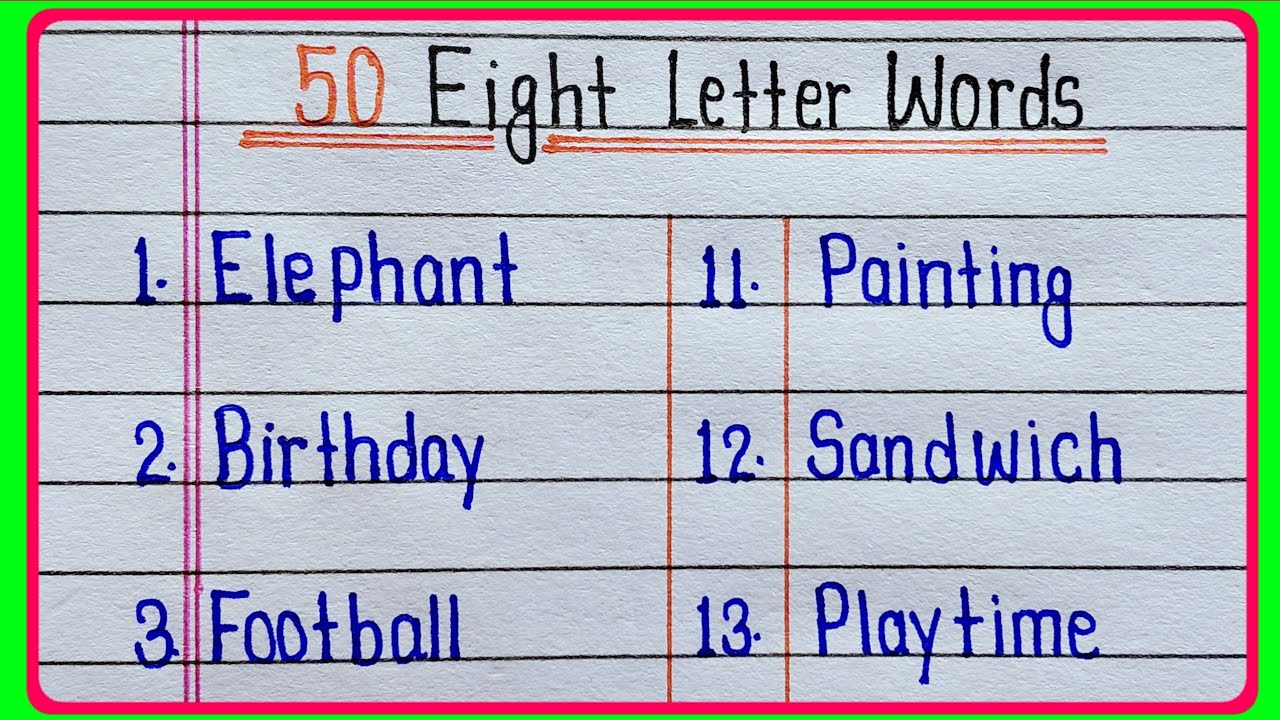 50 Eight Letter Words
1. Elephant 11. Painting
2. Birthday 12. Sandwich
3. Football 13. Playtime